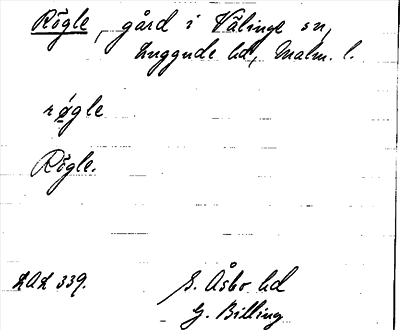 Rögle, gård i Välinge sn,
Luggude hd, Malm. l.
røgle
Rögle.
LAL 339.
S. Åsbo hd
G. Billing